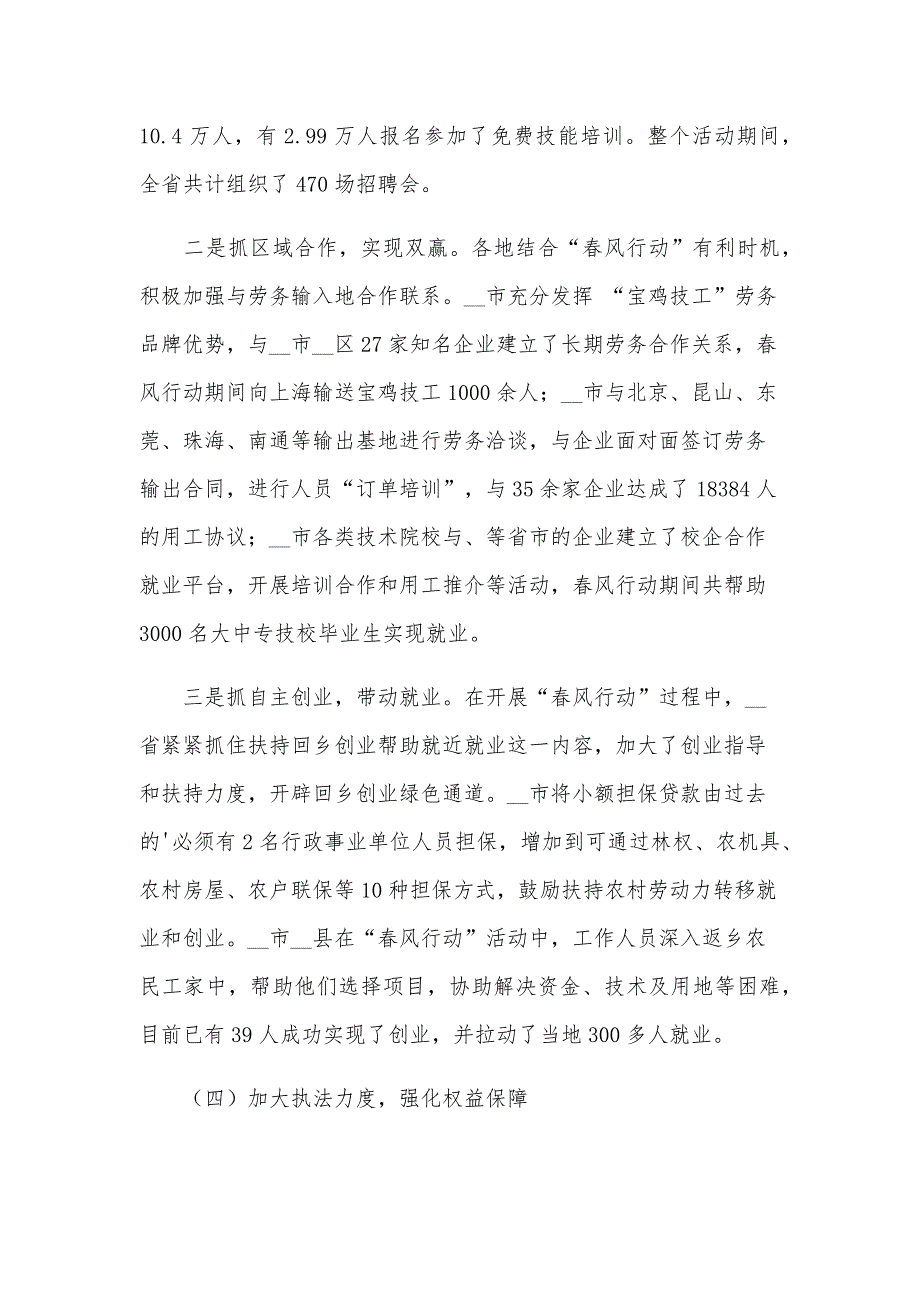 10.4 万人，有 2.99 万人报名参加了免费技能培训。整个活动期间，
全省共计组织了 470 场招聘会。
二是抓区域合作，实现双赢。各地结合“春风行动”有利时机，
积极加强与劳务输入地合作联系。__市充分发挥 “宝鸡技工”劳务
品牌优势，与__市__区 27 家知名企业建立了长期劳务合作关系，春
风行动期间向上海输送宝鸡技工 1000 余人；__市与北京、昆山、东
莞、珠海、南通等输出基地进行劳务洽谈，与企业面对面签订劳务
输出合同，进行人员“订单培训”，与 35 余家企业达成了 18384 人
的用工协议；__市各类技术院校与、等省市的企业建立了校企合作
就业平台，开展培训合作和用工推介等活动，春风行动期间共帮助
3000 名大中专技校毕业生实现就业。
三是抓自主创业，带动就业。在开展“春风行动”过程中，__
省紧紧抓住扶持回乡创业帮助就近就业这一内容，加大了创业指导
和扶持力度，开辟回乡创业绿色通道。__市将小额担保贷款由过去
的'必须有 2 名行政事业单位人员担保，增加到可通过林权、农机具、
农村房屋、农户联保等 10 种担保方式，鼓励扶持农村劳动力转移就
业和创业。__市__县在“春风行动”活动中，工作人员深入返乡农
民工家中，帮助他们选择项目，协助解决资金、技术及用地等困难，
目前已有 39 人成功实现了创业，并拉动了当地 300 多人就业。
（四）加大执法力度，强化权益保障